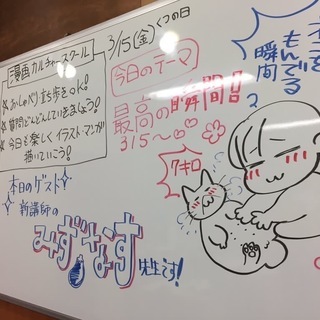 漫画カルチャースクール
☆おしゃべり立ち歩きOK!
☆質問どんどんしていきましょう!
☆今日も楽しくイラスト・マンガ
描いていこう!
3/15(金)くつの日
今日のテーマ
最高の瞬間!!
3/5~
7キロ
もんでる
瞬間
本日のゲスト
新講師の
みずなす
先生です!